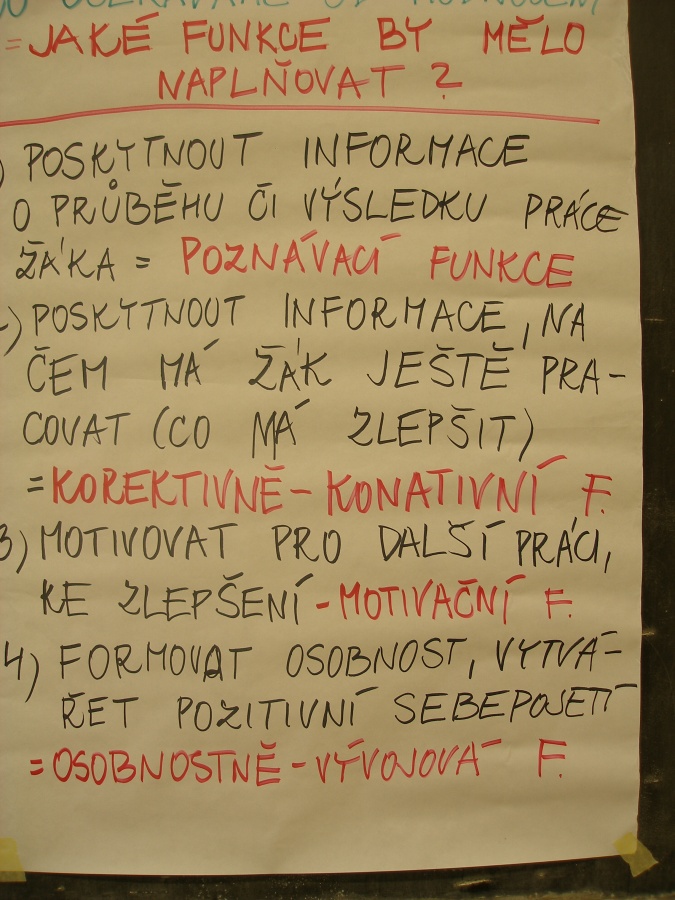 OČEKÁVÁME OD HODNOCENÍ
= JAKÉ FUNKCE BY MĚLO
NAPLŇOVAT ?
) POSKYTNOUT INFORMACE
O PRŮBĚHU ČI VÝSLEDKU PRÁCE
ŽÁKA = POZNÁVACÍ FUNKCE
) POSKYTNOUT INFORMACE, NA
ČEM MÁ ŽÁK JEŠTĚ PRA-
COVAT (CO MÁ ZLEPŠIT)
= KOREKTIVNĚ - KONATIVNÍ F.
3) MOTIVOVAT PRO DALŠÍ PRÁCI,
KE ZLEPŠENÍ - MOTIVAČNÍ F.
4) FORMOVAT OSOBNOST, VYTVÁ-
ŘET POZITIVNÍ SEBEPOJETÍ
= OSOBNOSTNĚ - VÝVOJOVÁ F.